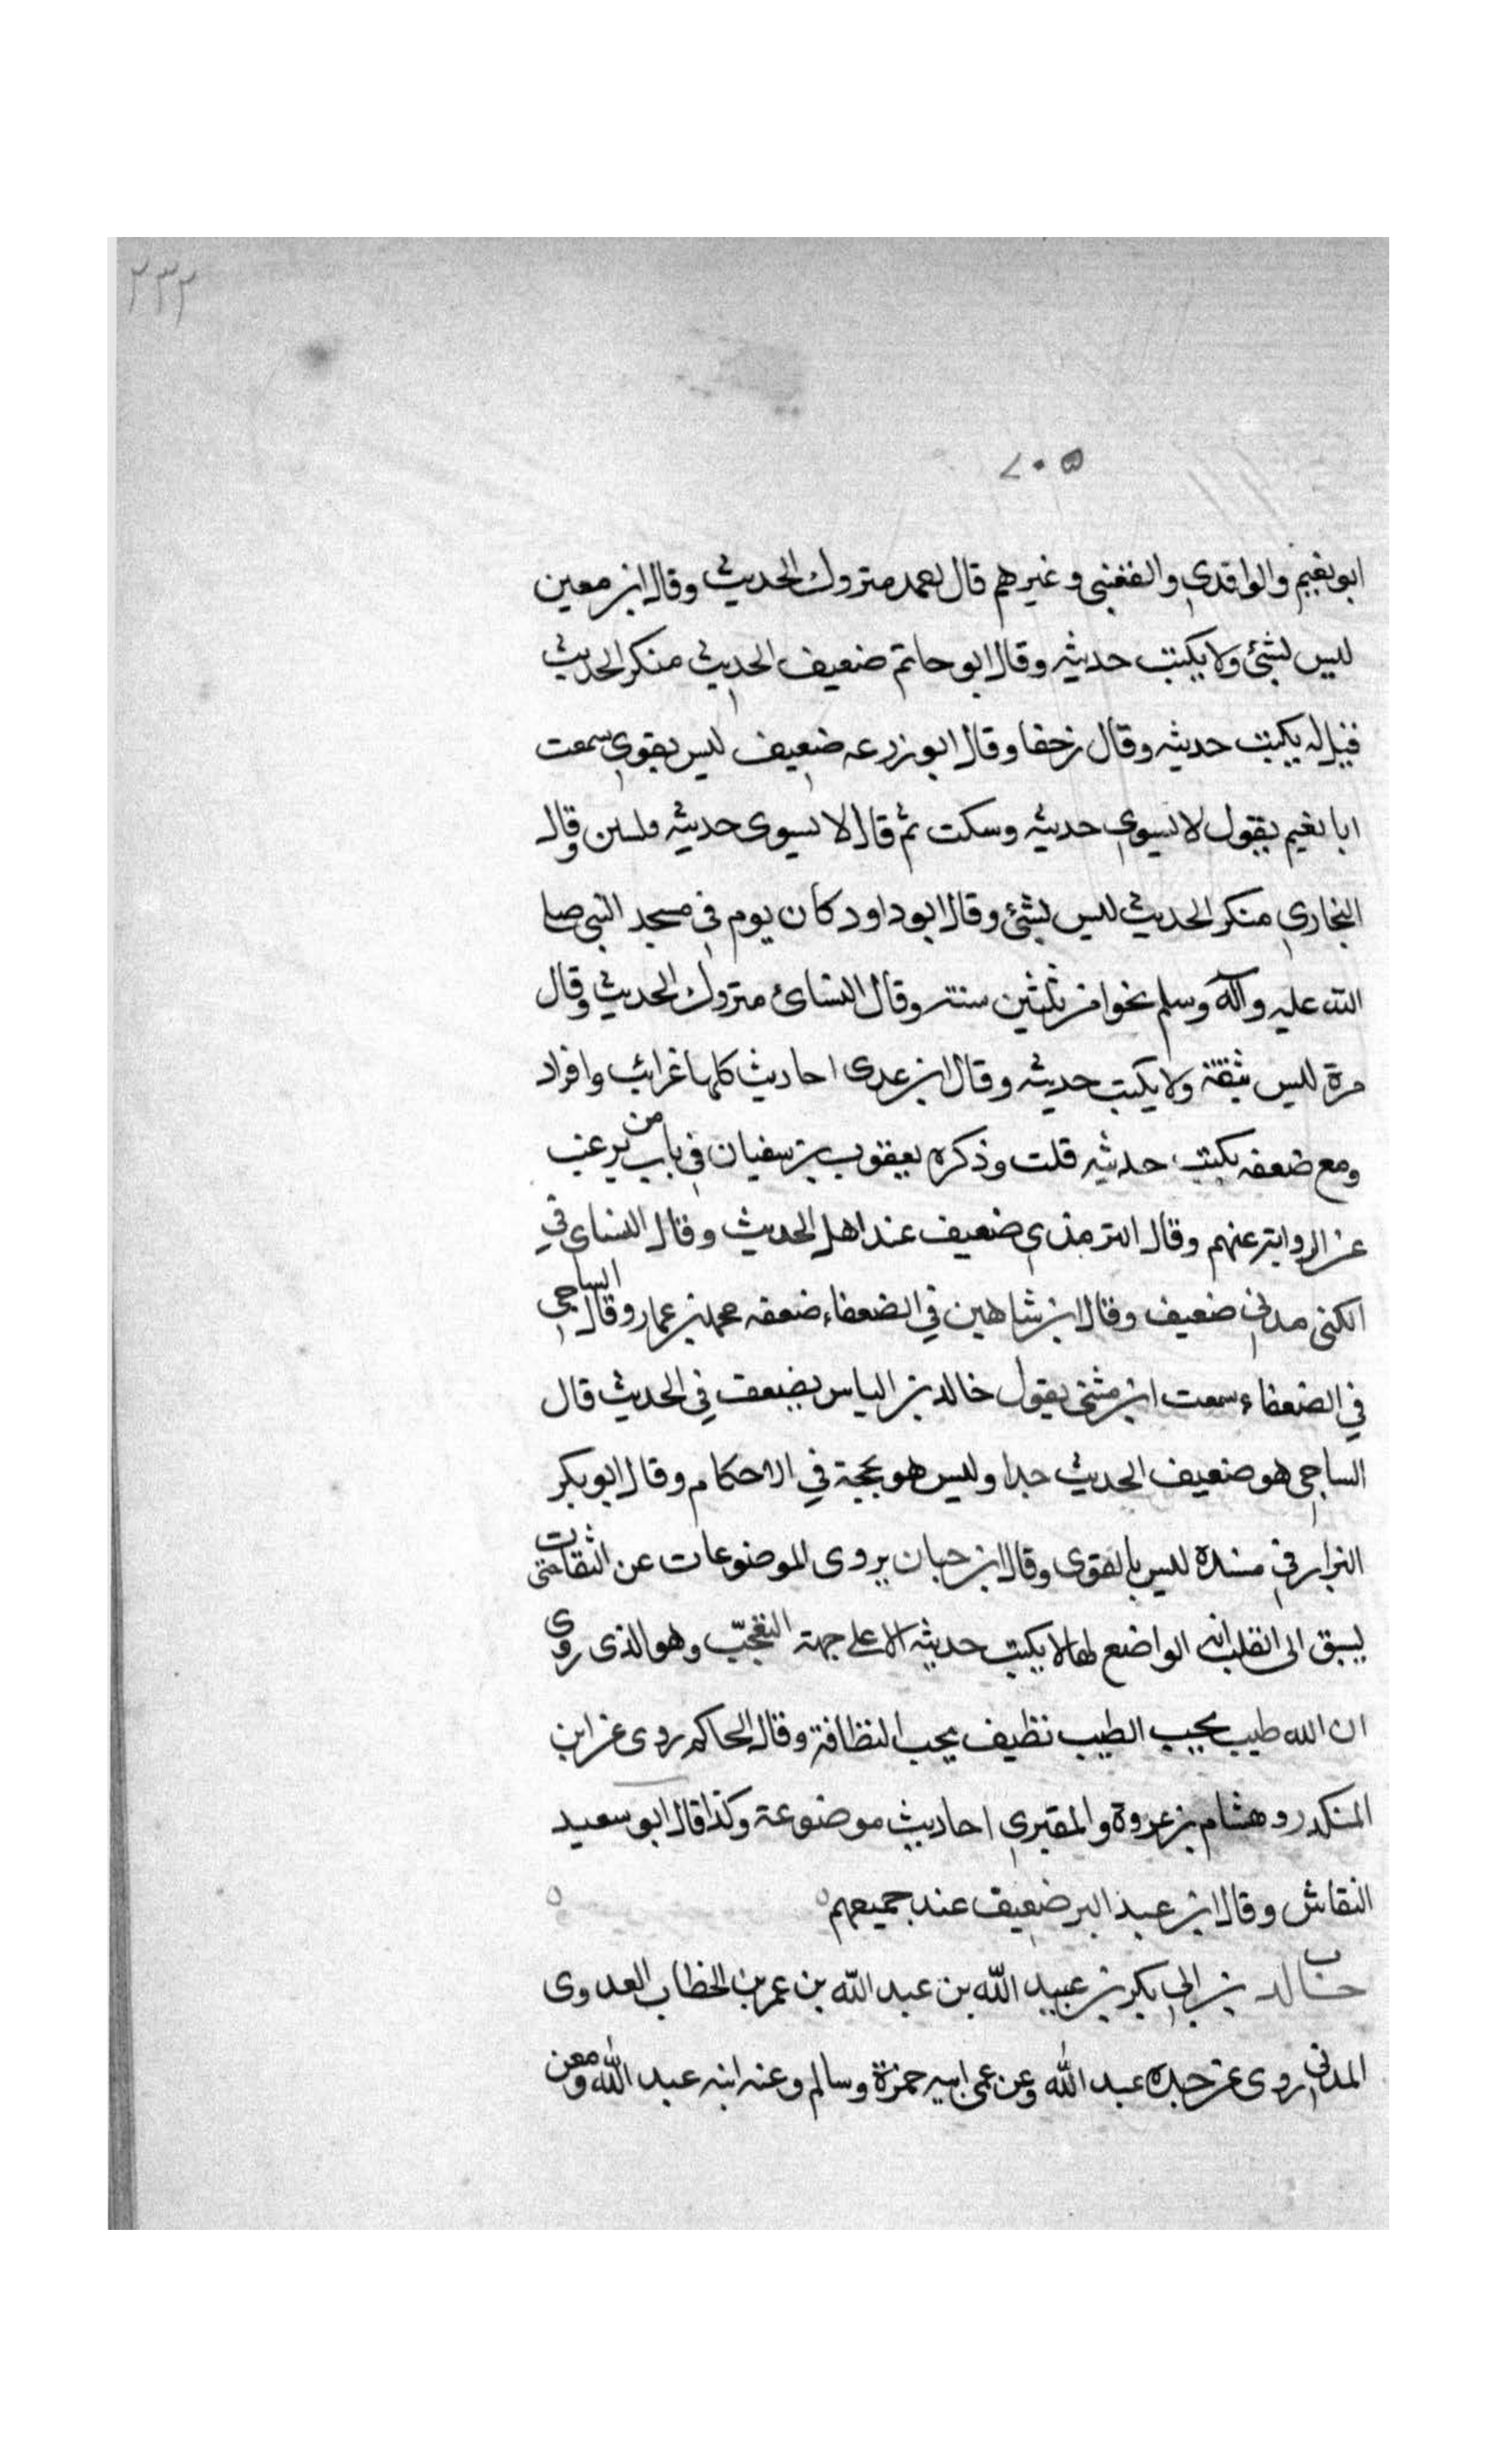 ٢٣٢
٥٠٧
ابو نعيم والواقدي والقعنبي وغيرهم قال احمد متروك الحديث وقال ابن معين
ليس بشئ ولا يكتب حديثه وقال ابو حاتم ضعيف الحديث منكر الحديث
فقيل له يكتب حديثه وقال زحفا وقال ابو زرعه ضعيف ليس بقوي سمعت
ابا نعيم يقول لا يسوى حديثه وسكت ثم قال لا يسوى حديثه فلسين وقال
البخاري منكر الحديث ليس بشئ وقال ابو داود كان يوم في مسجد النبي صلى
الله عليه وآله وسلم نحوا من ثلثين سنة وقال النسائ متروك الحديث وقال
مرة ليس بثقة ولا يكتب حديثه وقال ابن عدى احاديث كلها غرائب وافراد
ومع ضعفه يكتب حديثه قلت وذكره يعقوب بن سفيان في باب من يرغب
عن الرواية عنهم وقال الترمذي ضعيف عند اهل الحديث وقال النساى في
الكنى مدني ضعيف وقال ابن شاهين في الضعفاء ضعفه محمد بن عمار وقال الساجي
في الضعفاء سمعت ابن مثنى يقول خالد بن الياس يضعف في الحديث قال
الساجي هو ضعيف الحديث جدا وليس هو بحجة في الاحكام وقال ابو بكر
البزار في مسنده ليس بالقوى وقال ابن حبان يروى الموضوعات عن الثقات حتى
يسبق الى القلب انه الواضع لها لا يكتب حديثه الا على جهة التعجّب وهو الذى روى
ان الله طيب يحب الطيب نظيف يحب النظافة وقال الحاكم روى عن ابن
المنكدر و هشام بن عروة والمقبري احاديث موضوعة وكذا قال ابو سعيد
النقاش وقال ابن عبد البر ضعيف عند جميعهم
خالد بن ابي بكر بن عبيد الله بن عبد الله بن عمر بن الخطاب العدوى
المدني روى عن جده عبد الله وعن عمى ابيه حمزة وسالم وعنه ابنه عبد الله ومعن